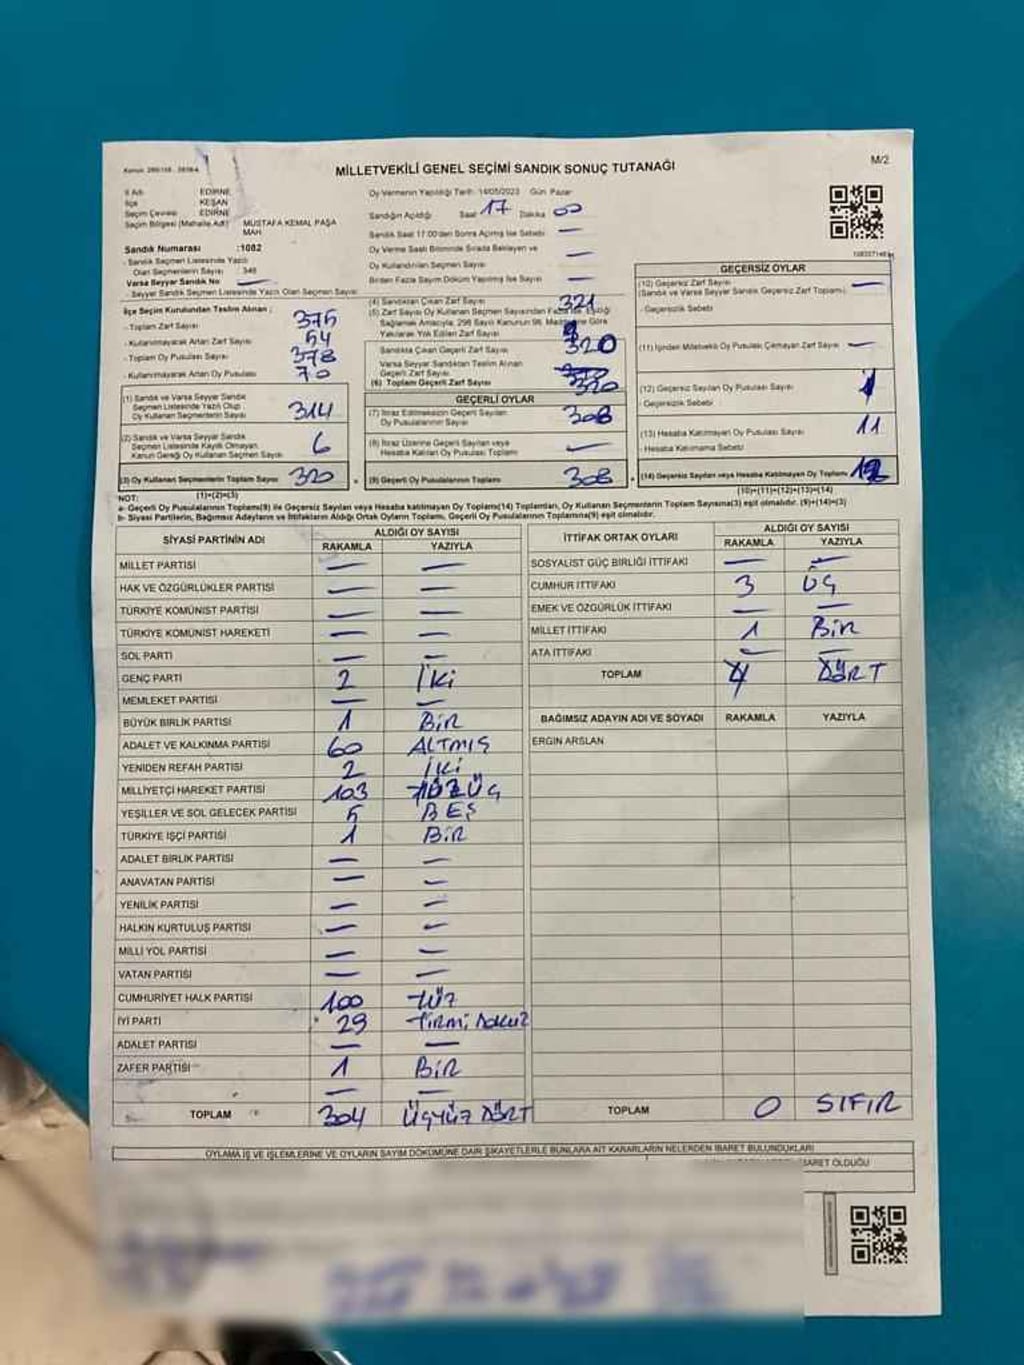 M/2
MİLLETVEKİLİ GENEL SEÇİMİ SANDIK SONUÇ TUTANAĞI
İl Adı EDİRNE
İlçe KEŞAN
Seçim Çevresi EDİRNE
Seçim Bölgesi (Mahalle Adı) MUSTAFA KEMAL PAŞA MAH
Sandık Numarası :1082
- Sandık Seçmen Listesinde Yazılı
Olan Seçmenlerin Sayısı : 346
Varsa Seyyar Sandık No —
- Seyyar Sandık Seçmen Listesinde Yazılı Olan Seçmen Sayısı
İlçe Seçim Kurulundan Teslim Alınan ;
- Toplam Zarf Sayısı 375
- Kullanılmayarak Artan Zarf Sayısı 54
- Toplam Oy Pusulası Sayısı 378
- Kullanılmayarak Artan Oy Pusulası 70
(1) Sandık ve Varsa Seyyar Sandık
Seçmen Listesinde Yazılı Olup
Oy Kullanan Seçmenlerin Sayısı 314
(2) Sandık ve Varsa Seyyar Sandık
Seçmen Listesinde Kayıtlı Olmayan
Kanun Gereği Oy Kullanan Seçmen Sayısı 6
(3) Oy Kullanan Seçmenlerin Toplam Sayısı 320
(1)+(2)=(3)
Oy Vermenin Yapıldığı Tarih: 14/05/2023 Gün: Pazar
Sandığın Açıldığı Saat 17 Dakika 00
Sandık Saat 17:00'den Sonra Açılmış İse Sebebi —
Oy Verme Saati Bitiminde Sırada Bekleyen ve
Oy Kullandırılan Seçmen Sayısı —
Birden Fazla Sayım Döküm Yapılmış İse Sayısı —
(4) Sandıktan Çıkan Zarf Sayısı 321
(5) Zarf Sayısı Oy Kullanan Seçmen Sayısından Fazla İse, Eşitliği
Sağlamak Amacıyla, 298 Sayılı Kanunun 98. Maddesine Göre
Yakılarak Yok Edilen Zarf Sayısı
Sandıkta Çıkan Geçerli Zarf Sayısı 320
Varsa Seyyar Sandıktan Teslim Alınan
Geçerli Zarf Sayısı
(6) Toplam Geçerli Zarf Sayısı 320
GEÇERLİ OYLAR
(7) İtiraz Edilmeksizin Geçerli Sayılan
Oy Pusulalarının Sayısı 308
(8) İtiraz Üzerine Geçerli Sayılan veya
Hesaba Katılan Oy Pusulası Toplamı —
(9) Geçerli Oy Pusulalarının Toplamı 308
GEÇERSİZ OYLAR
(10) Geçersiz Zarf Sayısı —
(Sandık ve Varsa Seyyar Sandık Geçersiz Zarf Toplamı)
- Geçersizlik Sebebi
(11) İçinden Milletvekili Oy Pusulası Çıkmayan Zarf Sayısı —
(12) Geçersiz Sayılan Oy Pusulası Sayısı 1
- Geçersizlik Sebebi
(13) Hesaba Katılmayan Oy Pusulası Sayısı 11
- Hesaba Katılmama Sebebi
(14) Geçersiz Sayılan veya Hesaba Katılmayan Oy Toplamı 12
(10)+(11)+(12)+(13)=(14)
NOT:
a- Geçerli Oy Pusulalarının Toplamı(9) ile Geçersiz Sayılan veya Hesaba katılmayan Oy Toplamı(14) Toplamları, Oy Kullanan Seçmenlerin Toplam Sayısına(3) eşit olmalıdır. (9)+(14)=(3)
b- Siyasi Partilerin, Bağımsız Adayların ve İttifakların Aldığı Ortak Oyların Toplamı, Geçerli Oy Pusulalarının Toplamına(9) eşit olmalıdır.
SİYASİ PARTİNİN ADI ALDIĞI OY SAYISI
RAKAMLA YAZIYLA
MİLLET PARTİSİ — —
HAK VE ÖZGÜRLÜKLER PARTİSİ — —
TÜRKİYE KOMÜNİST PARTİSİ — —
TÜRKİYE KOMÜNİST HAREKETİ — —
SOL PARTİ — —
GENÇ PARTİ 2 İKİ
MEMLEKET PARTİSİ — —
BÜYÜK BİRLİK PARTİSİ 1 BİR
ADALET VE KALKINMA PARTİSİ 60 ALTMIŞ
YENİDEN REFAH PARTİSİ 2 İKİ
MİLLİYETÇİ HAREKET PARTİSİ 103 YÜZÜÇ
YEŞİLLER VE SOL GELECEK PARTİSİ 5 BEŞ
TÜRKİYE İŞÇİ PARTİSİ 1 BİR
ADALET BİRLİK PARTİSİ — —
ANAVATAN PARTİSİ — —
YENİLİK PARTİSİ — —
HALKIN KURTULUŞ PARTİSİ — —
MİLLİ YOL PARTİSİ — —
VATAN PARTİSİ — —
CUMHURİYET HALK PARTİSİ 100 YÜZ
İYİ PARTİ 29 YİRMİ DOKUZ
ADALET PARTİSİ — —
ZAFER PARTİSİ 1 BİR
— —
TOPLAM 304 ÜÇYÜZ DÖRT
İTTİFAK ORTAK OYLARI ALDIĞI OY SAYISI
RAKAMLA YAZIYLA
SOSYALİST GÜÇ BİRLİĞİ İTTİFAKI — —
CUMHUR İTTİFAKI 3 ÜÇ
EMEK VE ÖZGÜRLÜK İTTİFAKI — —
MİLLET İTTİFAKI 1 BİR
ATA İTTİFAKI — —
TOPLAM 4 DÖRT
BAĞIMSIZ ADAYIN ADI VE SOYADI RAKAMLA YAZIYLA
ERGIN ARSLAN
TOPLAM 0 SIFIR
OYLAMA İŞ VE İŞLEMLERİNE VE OYLARIN SAYIM DÖKÜMÜNE DAİR ŞİKAYETLERLE BUNLARA AİT KARARLARIN NELERDEN İBARET BULUNDUKLARI
İBARET OLDUĞU